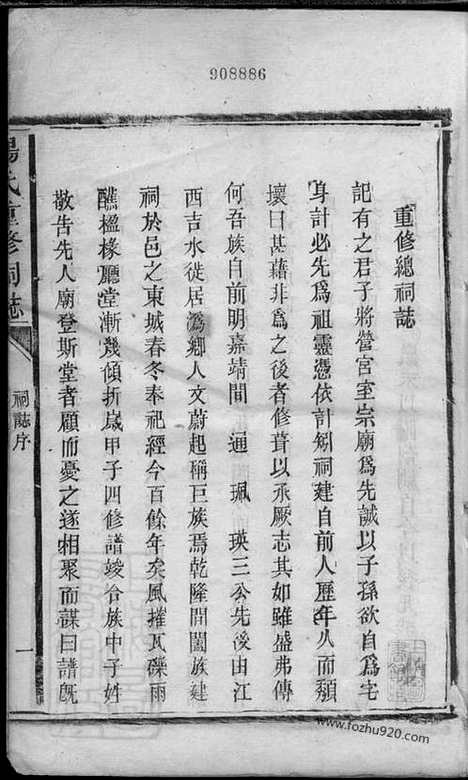 908886
重修總祠誌
記有之君子將營宮室宗廟爲先誠以子孫欲自爲宅
身計必先爲祖靈憑依計矧祠建自前人歷年久而頽
壞日甚藉非爲之後者修葺以承厥志其如雖盛弗傳
何吾族自前明嘉靖間 通 珮 瑛三公先後由江
西吉水徙居溈鄉人文蔚起稱巨族焉乾隆間闔族建
祠於邑之東城春冬奉祀經今百餘年矣風摧瓦礫雨
醮楹椽廳堂漸幾傾折歲甲子四修譜竣合族中子姓
敬告先人廟登斯堂者顧而憂之遂相聚而謀曰譜既
楊氏重修祠誌
祠誌序
一
www.fozhu920.com